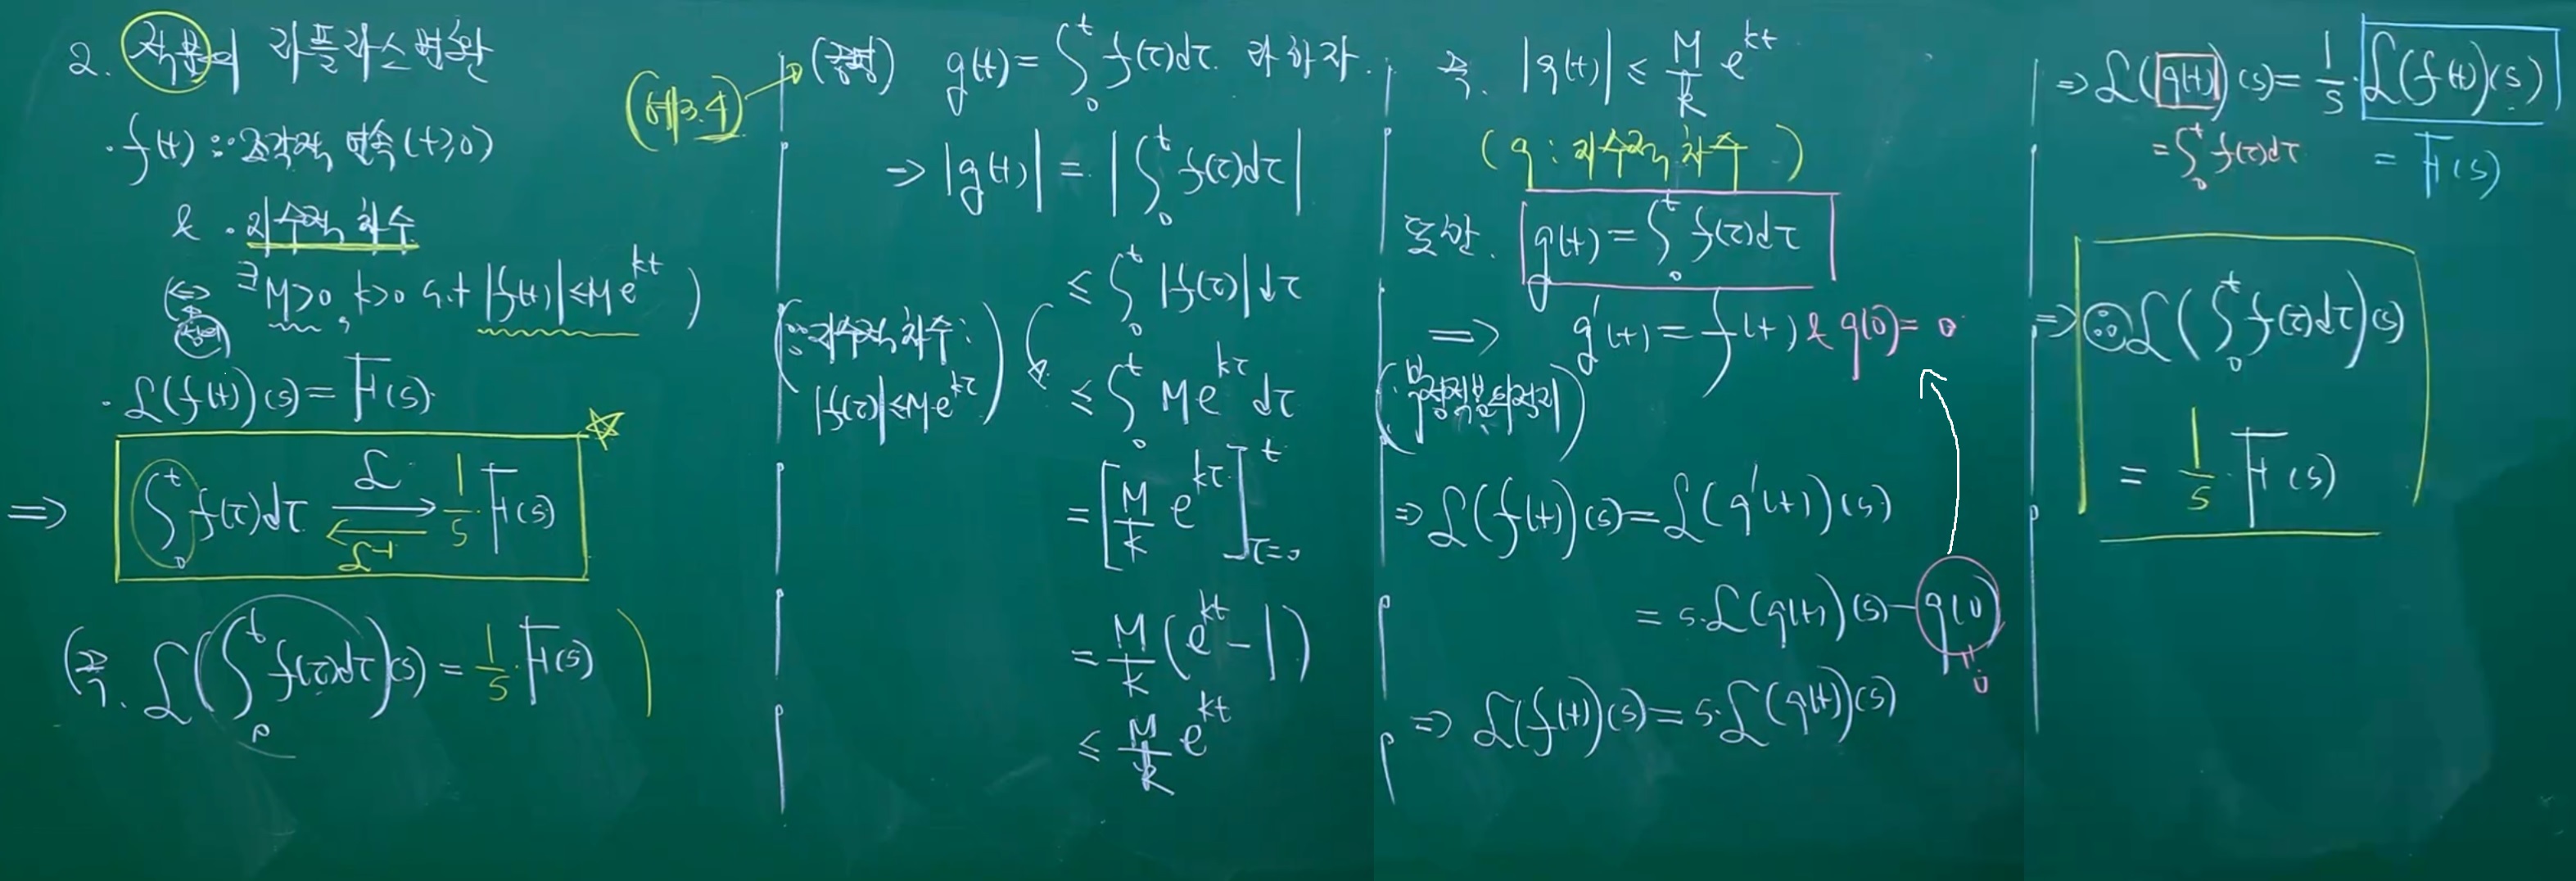 2. 적분의 라플라스 변환
· f(t) : 조각적 연속 (t≥0)
& · 지수적 함수
(⇔ ∃M>0, k>0 s.t |f(t)| ≤ Me^{kt})
정의
· ℒ(f(t))(s) = F(s).
⇒ ∫_0^t f(τ)dτ ⟶ℒ ⟵ℒ^{-1} 1/s · F(s) ☆
(즉, ℒ(∫_0^t f(τ)dτ)(s) = 1/s · F(s))
(예3.4)
(증명) g(t) = ∫_0^t f(τ)dτ 라 하자.
⇒ |g(t)| = |∫_0^t f(τ)dτ|
≤ ∫_0^t |f(τ)| dτ
(∵ 지수적 함수 :
|f(τ)| ≤ M·e^{kτ})
≤ ∫_0^t Me^{kτ} dτ
= [M/k e^{kτ}]_{τ=0}^t
= M/k (e^{kt} - 1)
≤ M/k e^{kt}
즉, |g(t)| ≤ M/k e^{kt}
(g : 지수적 함수)
또한, g(t) = ∫_0^t f(τ)dτ
⇒ g'(t) = f(t) & g(0) = 0
(미적분기본정리)
⇒ ℒ(f(t))(s) = ℒ(g'(t))(s)
= s·ℒ(g(t))(s) - g(0)
= 0
⇒ ℒ(f(t))(s) = s·ℒ(g(t))(s)
⇒ ℒ(g(t))(s) = 1/s · ℒ(f(t))(s)
= ∫_0^t f(τ)dτ = F(s)
⇒ ∴ ℒ(∫_0^t f(τ)dτ)(s)
= 1/s · F(s)